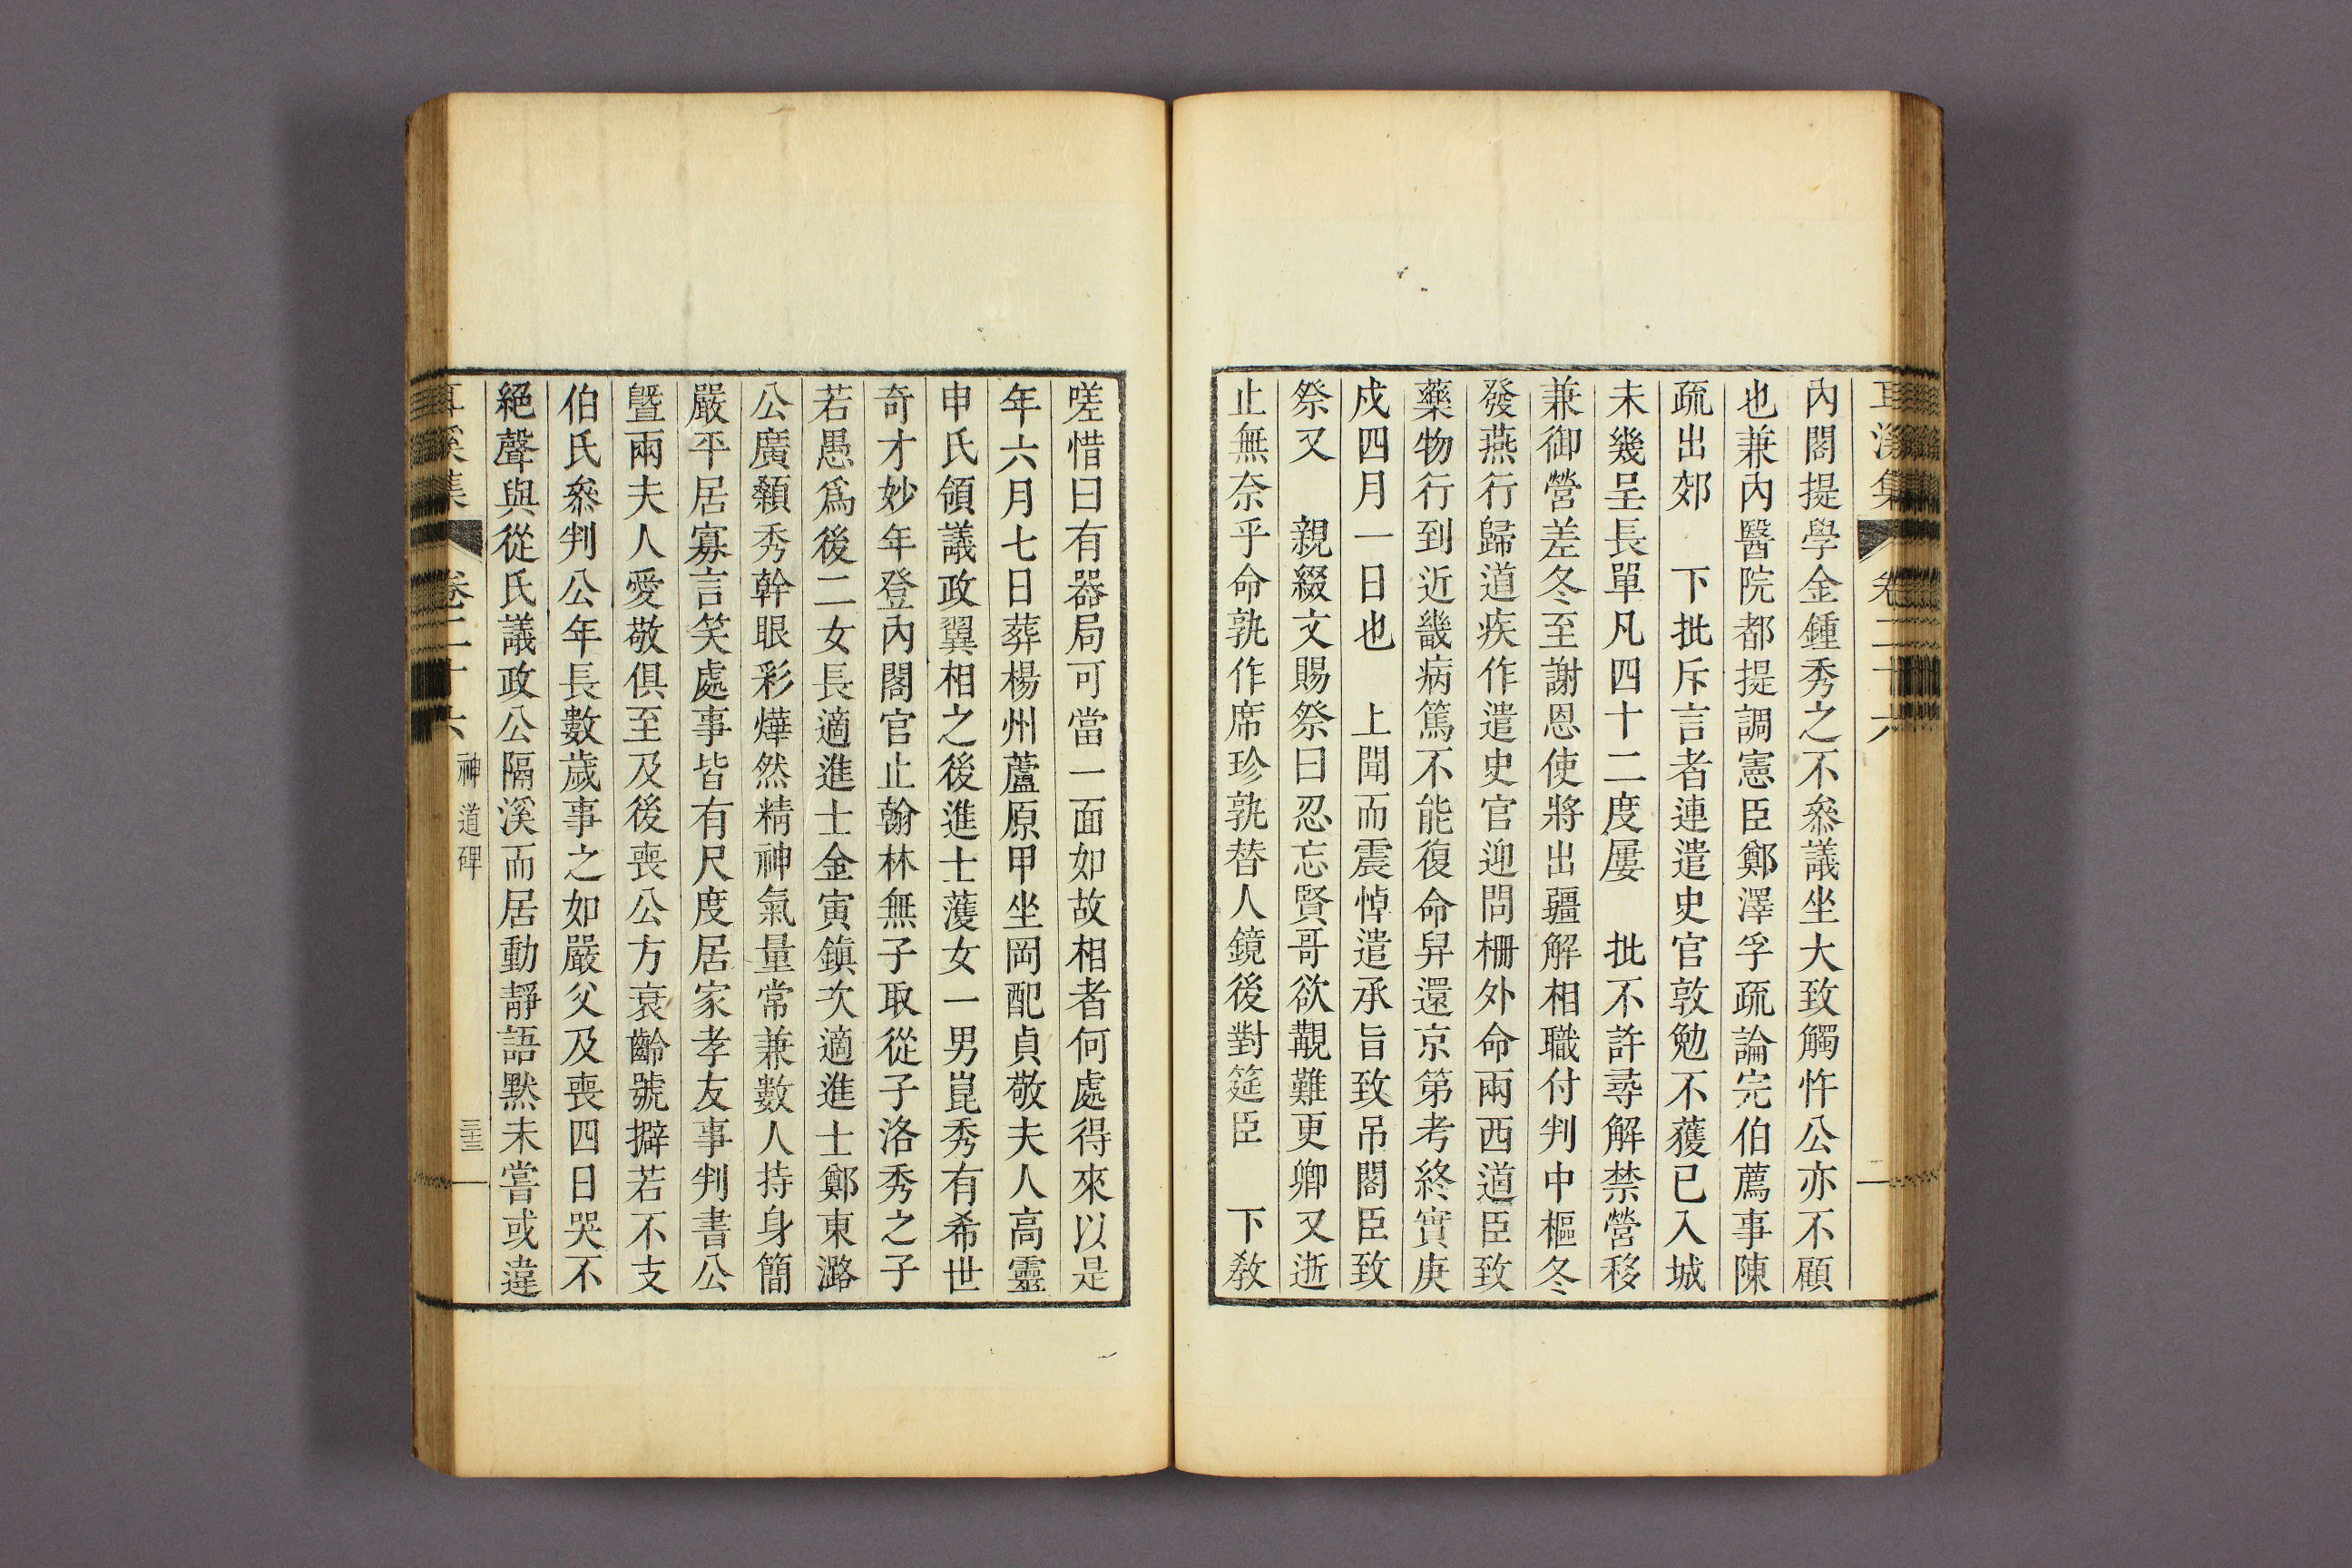 內閣提學金鍾秀之不叅議坐大致觸忤公亦不顧
也兼內醫院都提調憲臣鄭澤孚疏論完伯薦事陳
疏出郊　下批斥言者連遣史官敦勉不獲已入城
未幾呈長單凡四十二度屢　批不許尋解禁營移
兼御營差冬至謝恩使將出疆解相職付判中樞冬
發燕行歸道疾作遣史官迎問柵外命兩西道臣致
藥物行到近畿病篤不能復命舁還京第考終實庚
戌四月一日也　上聞而震悼遣承旨致吊閣臣致
祭又　親綴文賜祭曰忍忘賢哥欲覯難更卿又逝
止無奈乎命孰作席珍孰替人鏡後對筵臣　下敎
嗟惜曰有器局可當一面如故相者何處得來以是
年六月七日葬楊州蘆原甲坐岡配貞敬夫人高靈
申氏領議政翼相之後進士濩女一男崑秀有希世
奇才妙年登內閣官止翰林無子取從子洛秀之子
若愚爲後二女長適進士金寅鎭次適進士鄭東潞
公廣顙秀幹眼彩燁然精神氣量常兼數人持身簡
嚴平居寡言笑處事皆有尺度居家孝友事判書公
曁兩夫人愛敬俱至及後喪公方衰齡號擗若不支
伯氏叅判公年長數歲事之如嚴父及喪四日哭不
絕聲與從氏議政公隔溪而居動靜語默未嘗或違
卷二十六
神道碑
三十三